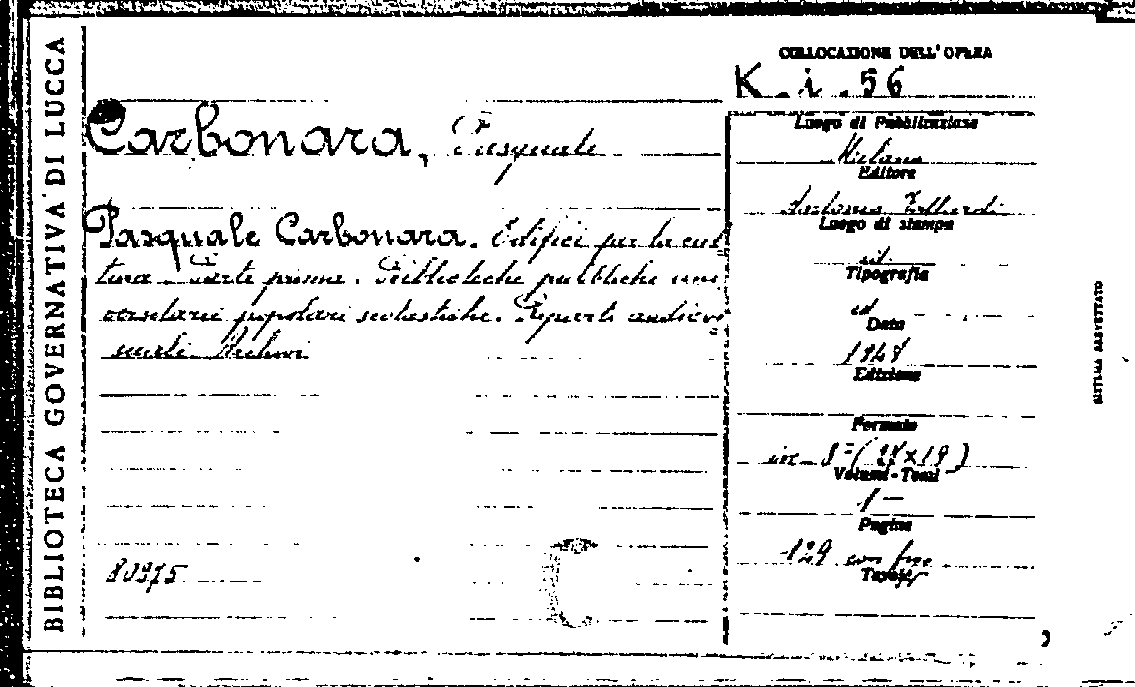 BIBLIOTECA GOVERNATIVA DI LUCCA
COLLOCAZIONE DELL'OPERA
K. i. 56
Carbonara, Pasquale
Pasquale Carbonara. Edifici per la cul
tura. Parte prima. Biblioteche pubbliche uni
versitarie popolari scolastiche. Reparti audiovi
sivi. Archivi
80975
Luogo di Pubblicazione
Milano
Editore
Antonio Vallardi
Luogo di stampa
id.
Tipografia
id
Data
Edizione
Formato
in-8° ( x19)
Volumi-Tomi
1 —
Pagine
129 con
Tavole
SISTEMA BREVETTATO